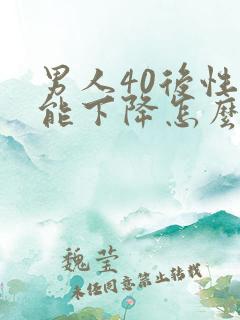 男人40後性
能下降怎麼
魏莹
未经同意禁止转载